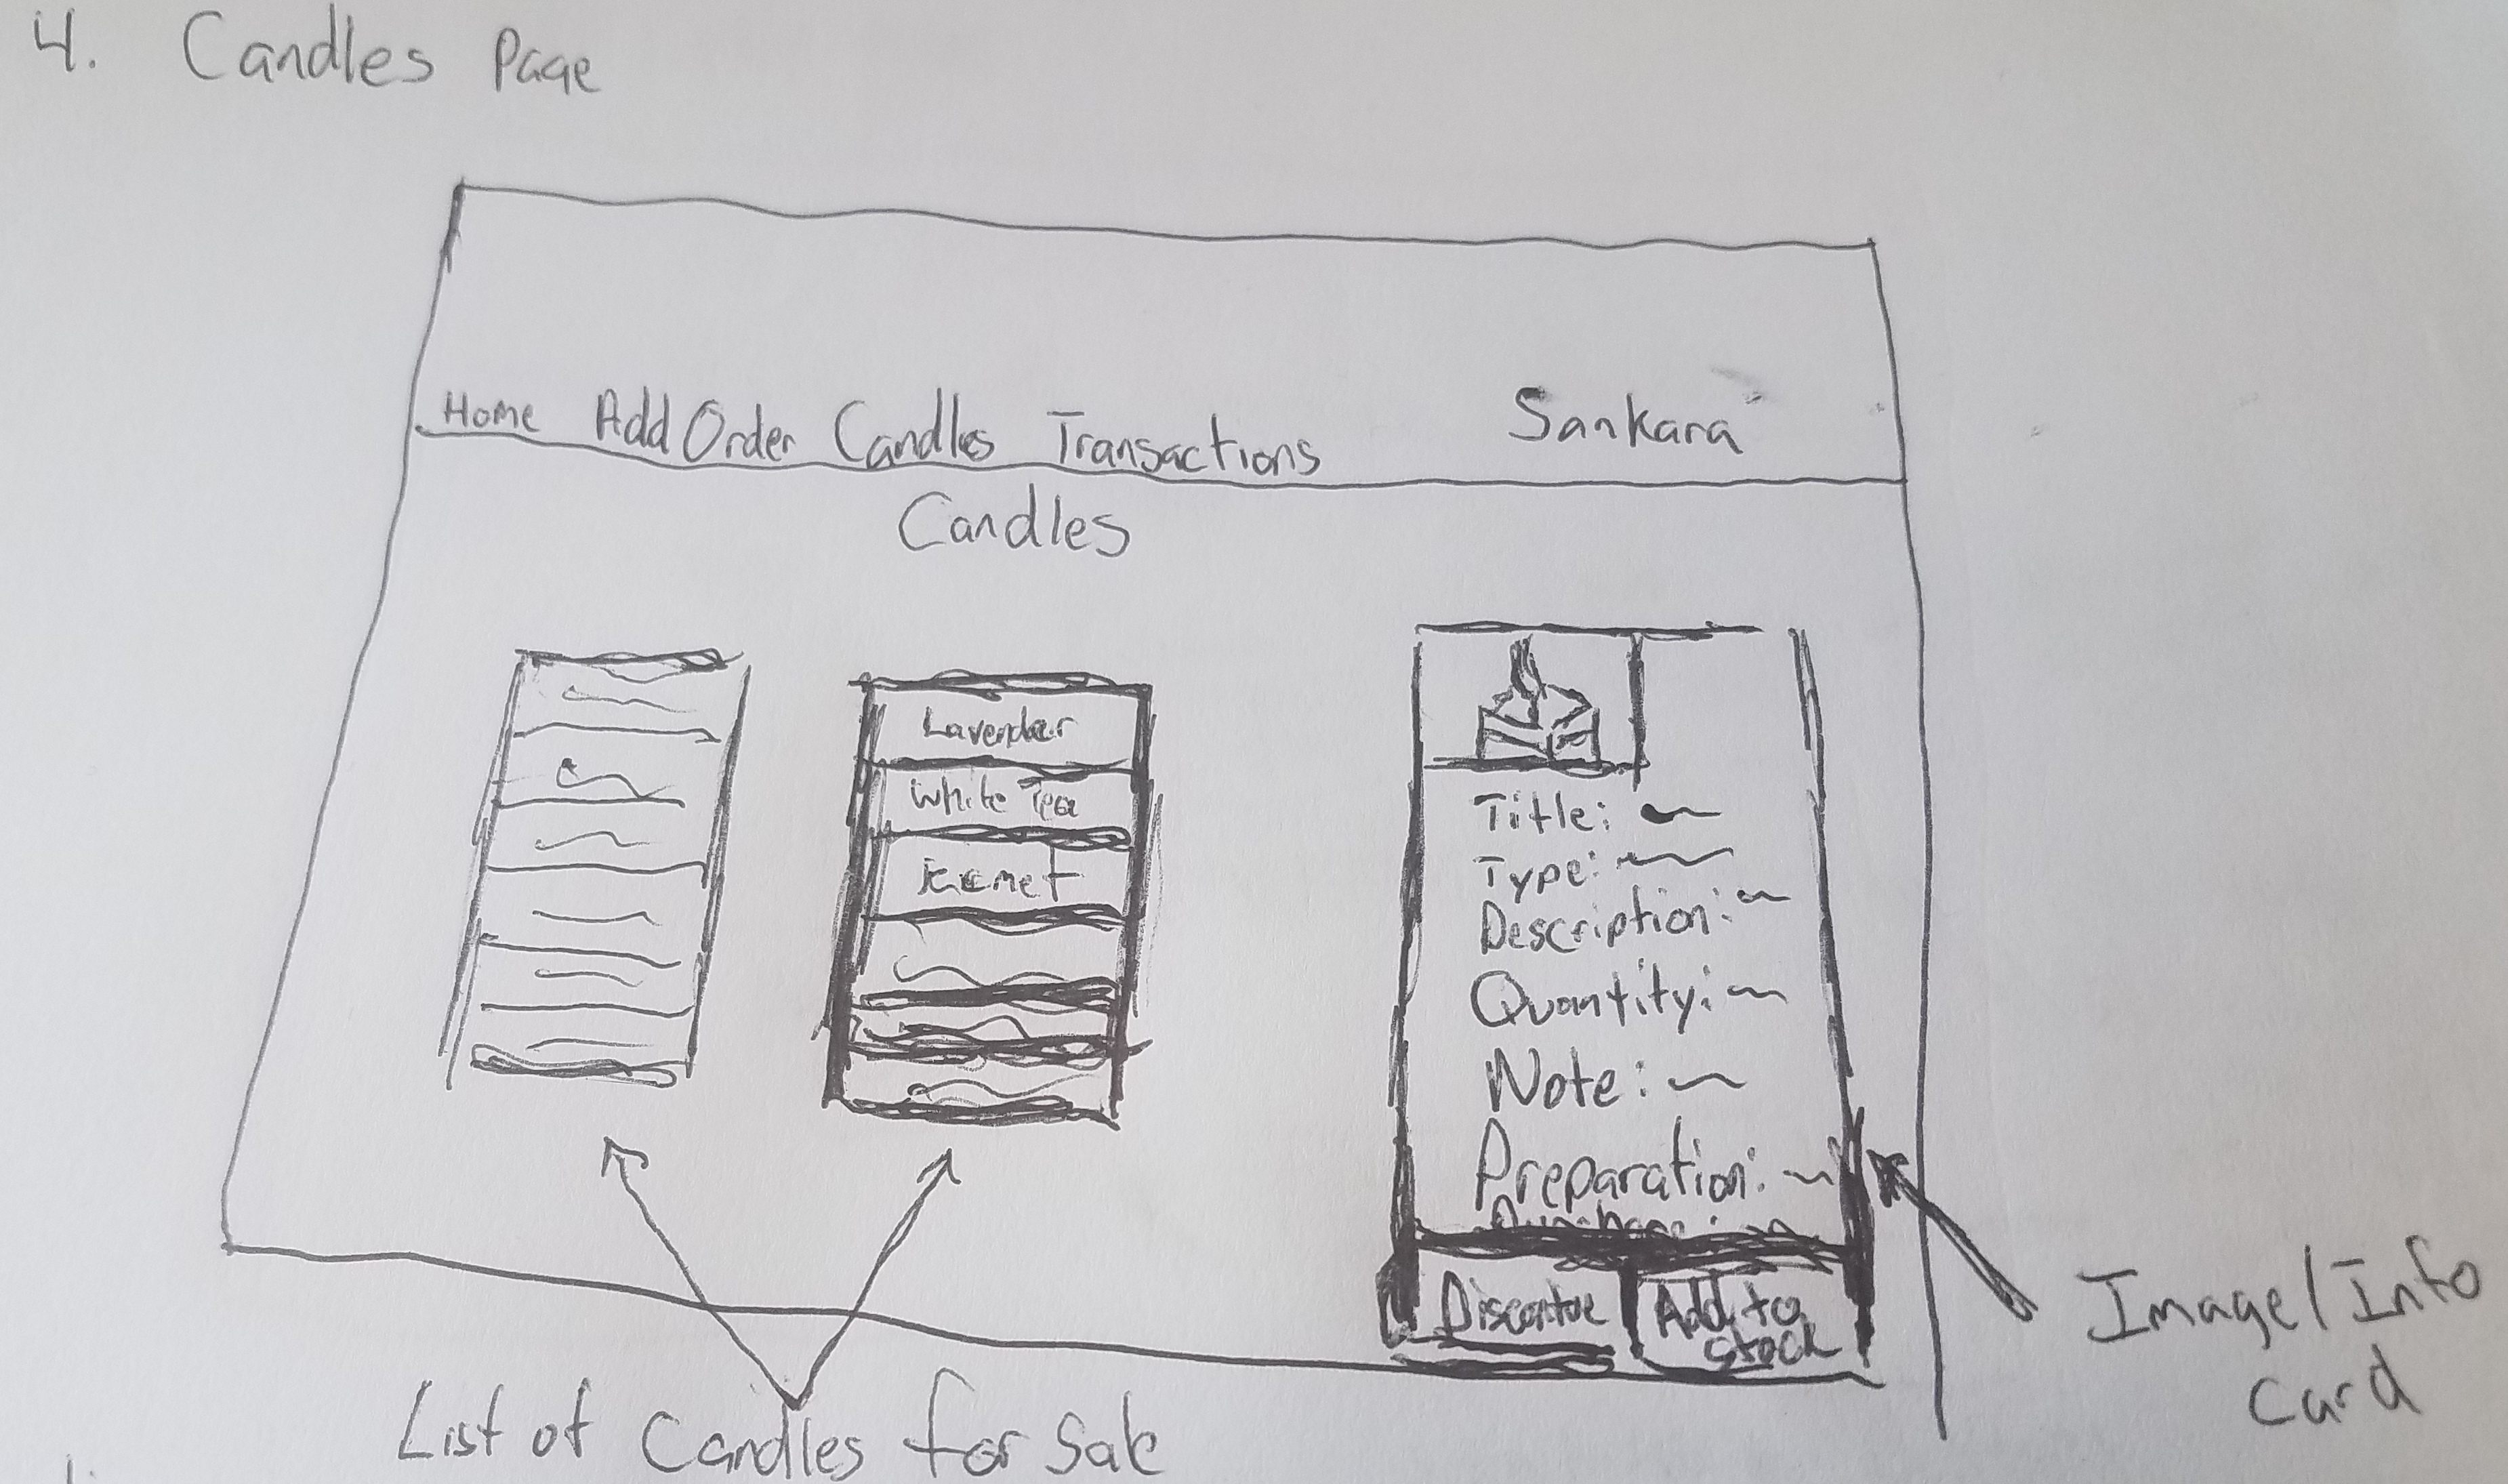 4. Candles Page
Home Add Order Candles Transactions Sankara
Candles
Lavendar
White Tea
Title:
Type:
Description:
Quantity:
Note:
Preparation:
Add to
stock
Image/Info
Card
List of Candles for Sale